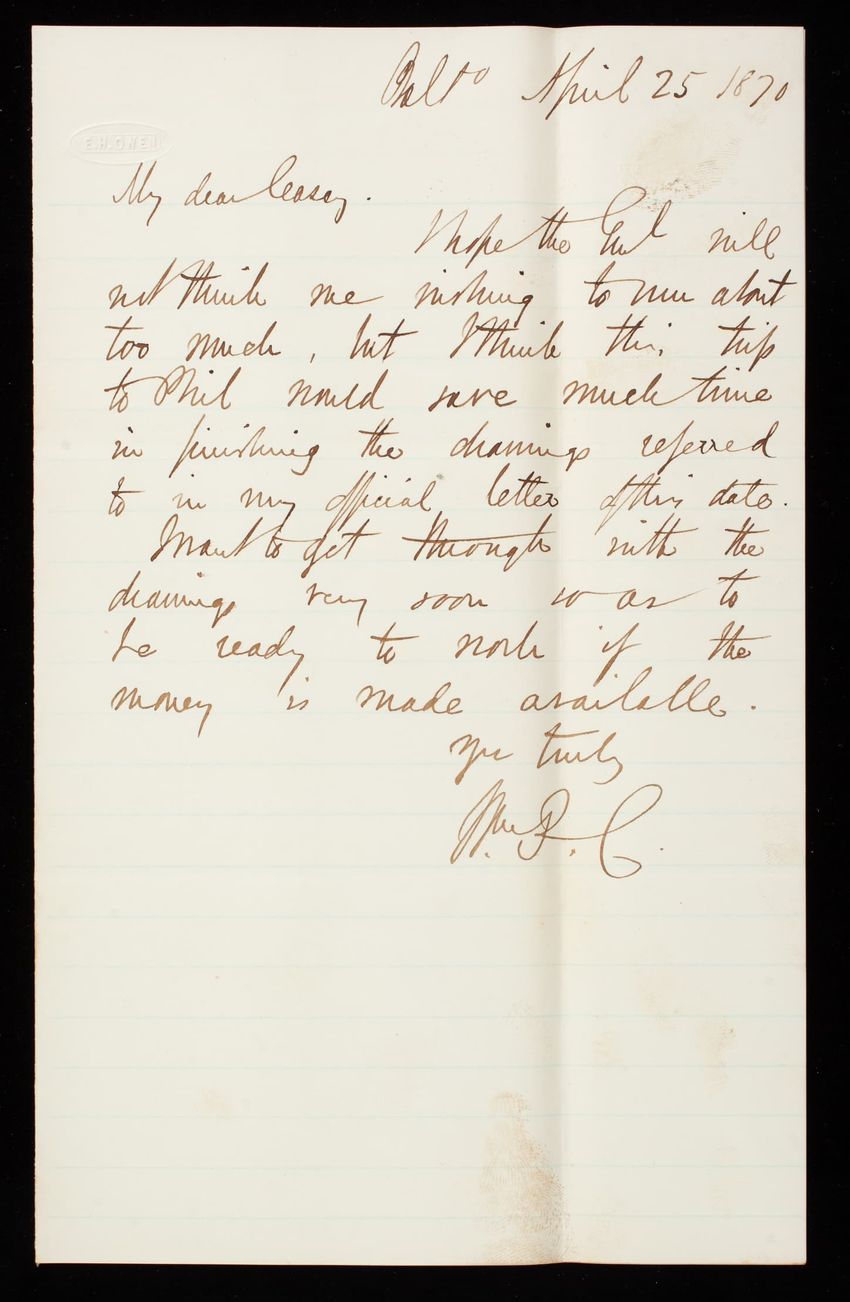 Balto April 25 1870
E.H.OWEN
My dear Casey.
I hope the Genl will
not think me wishing to run about
too much, but I think this trip
to Phil would save much time
in finishing the drawings referred
to in my official letter of this date.
I want to get through with the
drawings very soon so as to
be ready to work if the
money is made available.
Yrs truly
Wm. P. C.